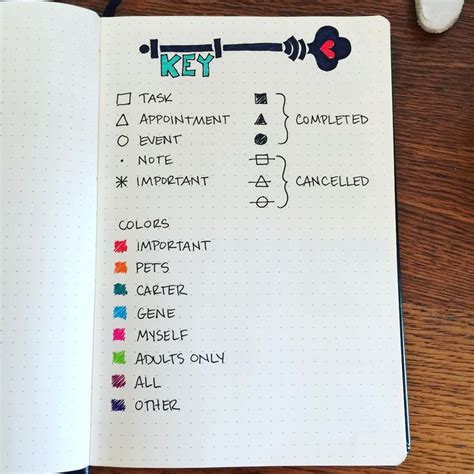 KEY
TASK
APPOINTMENT
EVENT
COMPLETED
NOTE
IMPORTANT
CANCELLED
COLORS
IMPORTANT
PETS
CARTER
GENE
MYSELF
ADULTS ONLY
ALL
OTHER